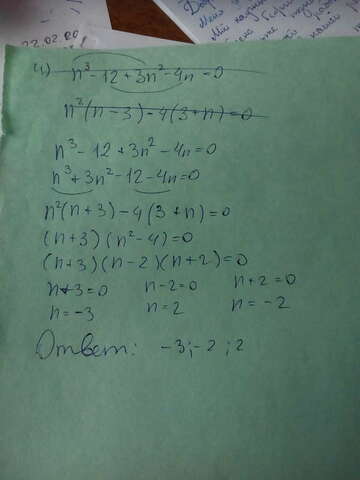 22.02.20
4) n³-12+3n²-4n=0
n²(n-3)-4(3+n)=0
n³-12+3n²-4n=0
n³+3n²-12-4n=0
n²(n+3)-4(3+n)=0
(n+3)(n²-4)=0
(n+3)(n-2)(n+2)=0
n+3=0 n-2=0 n+2=0
n=-3 n=2 n=-2
Ответ: -3;-2;2